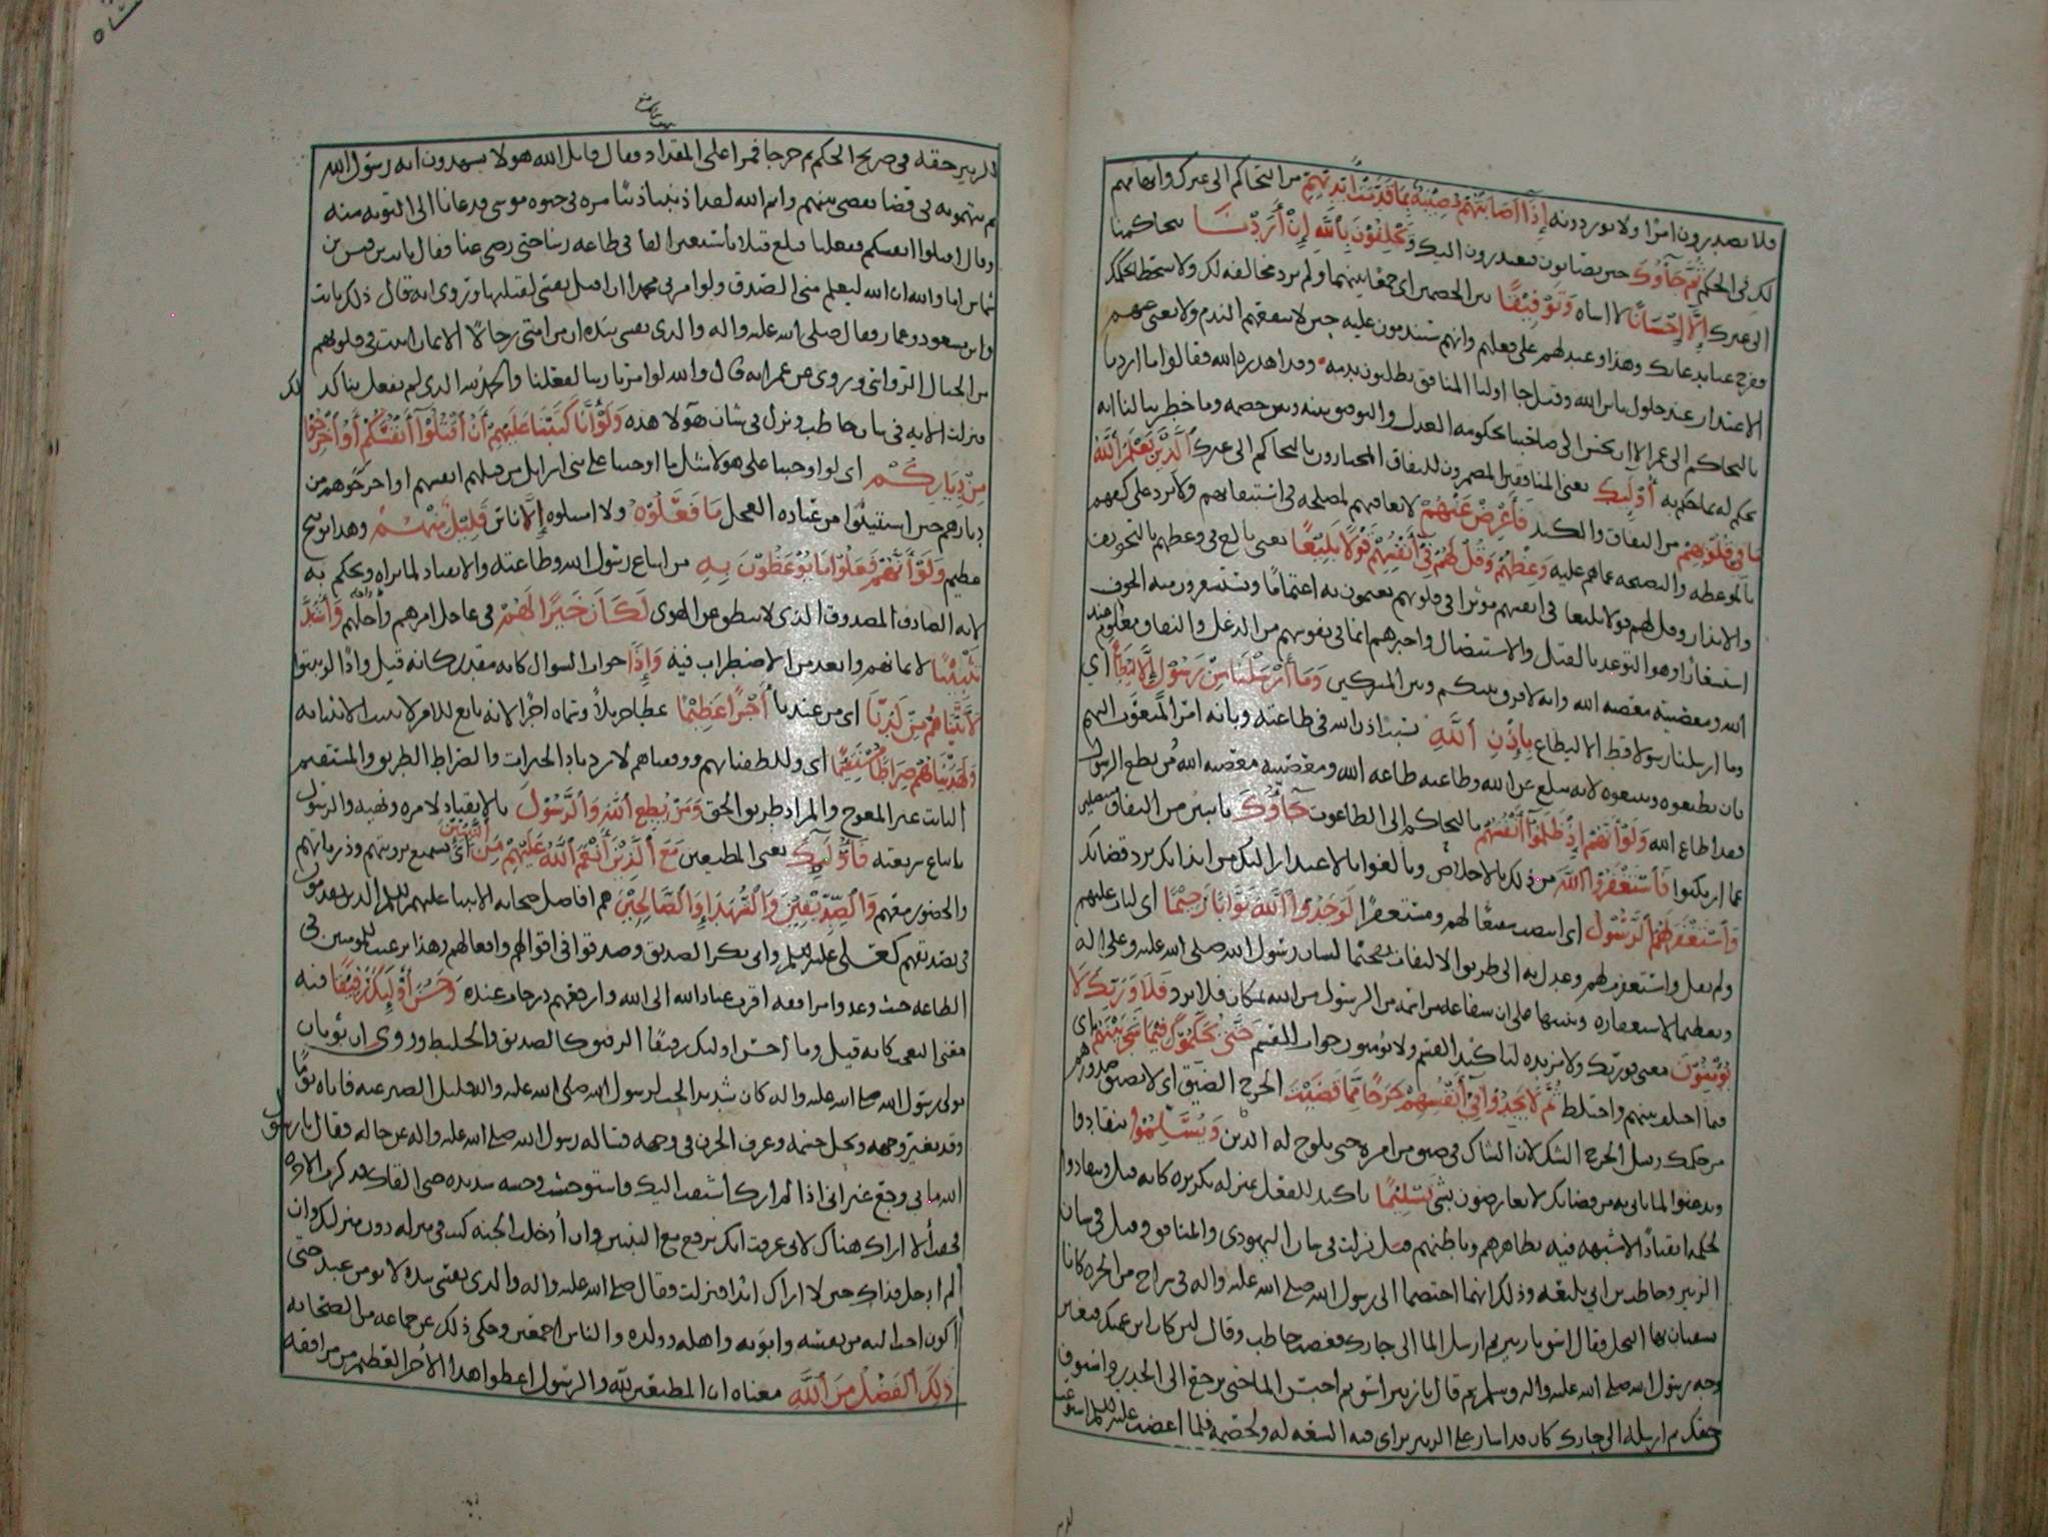 فلا يصدرون امرا ولا يوردونه إِذَا أَصَابَتْهُمْ مُصِيبَةٌ بِمَا قَدَّمَتْ أَيْدِيهِمْ من التحاكم الى غيرك واتهامهم
لك في الحكم ثُمَّ جَاؤُكَ حين يصابون فيعتذرون اليك وَيَحْلِفُونَ بِاللَّهِ إِنْ أَرَدْنَا بتحاكمنا
الى غيرك إِلَّا إِحْسَانًا لا اساه وَتَوْفِيقًا بين الخصمين اى جمعا بينهما ولم نرد مخالفه لك ولا تسخطا لحكمك
ففرج عنا بدعائك وهذا وعيد لهم على فعلهم وانهم سيندمون عليه حين لا ينفعهم الندم ولا يغنى عنهم
الاعتذار عند حلول باس الله وقيل جا اوليا المنافق يطلبون بدمه وقد اهدره الله فقالوا ما اردنا
بالتحاكم الى عمر الا ان يحسن الى صاحبنا بحكومه العدل والتوفيق بينه وبين خصمه وما خطر ببالنا انه
يحكم له بما حكم به أُولَئِكَ يعنى المنافقين المضمرون للنفاق المختارون بالتحاكم الى غيرك الَّذِينَ يَعْلَمُ اللَّهُ
مَا فِي قُلُوبِهِمْ من النفاق والكيد فَأَعْرِضْ عَنْهُمْ لا تعاقبهم لمصلحه في استبقائهم ولا تزد على كفهم
بالموعظه والنصيحه عما هم عليه وَعِظْهُمْ وَقُلْ لَهُمْ فِي أَنْفُسِهِمْ قَوْلًا بَلِيغًا يعنى بالغ في وعظهم بالتخويف
والانذار وقل لهم قولا بليغا في انفسهم موثرا في قلوبهم يغتمون به اغتماما ويستشعرون منه الخوف
استشعارا وهو التوعد بالقتل والاستيصال واخبرهم ان ما في نفوسهم من الدغل والنفاق معلوم عند
الله ومعصيته معصيه الله وانه لا فرق بينكم وبين المشركين وَمَا أَرْسَلْنَا مِنْ رَسُولٍ إِلَّا لِيُطَاعَ اى
وما ارسلنا رسولا قط الا ليطاع بِإِذْنِ اللَّهِ بسبب اذن الله في طاعته وبانه امر المبعوث اليهم
بان يطيعوه ويتبعوه لانه مبلغ عن الله وطاعته طاعه الله ومعصيته معصيه الله من يطع الرسول
فقد اطاع الله وَلَوْ أَنَّهُمْ إِذْ ظَلَمُوا أَنْفُسَهُمْ بالتحاكم الى الطاغوت جَاؤُكَ تائبين من النفاق متنصلين
عما ارتكبوا فَاسْتَغْفَرُوا اللَّهَ من ذلك بالاخلاص وبالغوا بالاعتذار اليك من ايذائك برد قضائك
وَاسْتَغْفَرَ لَهُمُ الرَّسُولُ اى انتصب شفيعا لهم ومستغفرا لَوَجَدُوا اللَّهَ تَوَّابًا رَحِيمًا اى لتاب عليهم
ولم يقل واستغفرت لهم وعدل به الى طريق الالتفات تفخيما لشان رسول الله صلى الله عليه وعلى اله
وتعظيما لاستغفاره وتنبيها على ان شفاعه من اسمه من الرسول من الله بمكان فلا يرد فَلَا وَرَبِّكَ لَا
يُؤْمِنُونَ معنى فوربك ولا مزيده لتاكيد القسم ولا يؤمنون جواب القسم حَتَّى يُحَكِّمُوكَ فِيمَا شَجَرَ بَيْنَهُمْ اى
فيما اختلف بينهم واختلط ثُمَّ لَا يَجِدُوا فِي أَنْفُسِهِمْ حَرَجًا مِمَّا قَضَيْتَ الحرج الضيق اى لا تضيق صدورهم
من حكمك وقيل الحرج الشك لان الشاك في ضيق من امره حتى يلوح له اليقين وَيُسَلِّمُوا ينقادوا
ويذعنوا لما تاتى به من قضائك لا يعارضون بشي تَسْلِيمًا تاكيد للفعل بمنزله تكريره كانه قيل وينقادوا
لحكمه انقيادا لا شبهه فيه بظاهرهم وباطنهم قيل نزلت في شان اليهودى والمنافق وقيل في شان
الزبير وحاطب بن ابي بلتعه وذلك انهما اختصما الى رسول الله صلى الله عليه واله في شراج من الحره كانا
يسقيان بها النخل فقال اسق يا زبير ثم ارسل الما الى جارك فغضب حاطب وقال لئن كان ابن عمتك فتغير
وجه رسول الله صلى الله عليه واله وسلم ثم قال يا زبير اسق ثم احبس الما حتى يرجع الى الجدر واستوف
حقك ثم ارسله الى جارك كان قد اشار على الزبير براى فيه السعه له ولخصمه فلما اغضب عليه السلم استوعب
للزبير حقه في صريح الحكم ثم خرجا فمرا على المقداد فقال قاتل الله هولا يشهدون انه رسول الله
ثم يتهمونه في قضا يقضى بينهم وايم الله لقد اذنبنا ذنبا مره في حيوه موسى فدعانا الى التوبه منه
وقال اقتلوا انفسكم ففعلنا فبلغ قتلانا سبعين الفا في طاعه ربنا حتى رضي عنا فقال ثابت بن قيس بن
شماس اما والله ان الله ليعلم منى الصدق ولو امرنى محمد ان اقتل نفسى لقتلتها وروى انه قال ذلك ثابت
وابن مسعود وعمار فقال صلى الله عليه واله والذى نفسى بيده ان من امتى رجالا الايمان اثبت في قلوبهم
من الجبال الرواسي وروى عن عمر انه قال والله لو امرنا ربنا لفعلنا والحمد لله الذى لم يفعل بنا ذلك
فنزلت الايه في شان حاطب ونزل في شان هولا هذه وَلَوْ أَنَّا كَتَبْنَا عَلَيْهِمْ أَنِ اقْتُلُوا أَنْفُسَكُمْ أَوِ اخْرُجُوا
مِنْ دِيَارِكُمْ اى لو اوجبنا على هولا مثل ما اوجبنا على بنى اسرايل من قتلهم انفسهم او اخرجوهم من
ديارهم حين استتيبوا من عباده العجل مَا فَعَلُوهُ ولا امتثلوه إِلَّا ناس قَلِيلٌ مِنْهُمْ وهذا توبيخ
عظيم وَلَوْ أَنَّهُمْ فَعَلُوا مَا يُوعَظُونَ بِهِ من اتباع رسول الله وطاعته والانقياد لما يراه ويحكم به
لانه الصادق المصدوق الذى لا ينطق عن الهوى لَكَانَ خَيْرًا لَهُمْ في عاجل امرهم واجلهم وَأَشَدَّ
تَثْبِيتًا لايمانهم وابعد من الاضطراب فيه وَإِذًا جواب السوال كانه مقدر كانه قيل واذا لو ثبتوا
لَآتَيْنَاهُمْ مِنْ لَدُنَّا اى من عندنا أَجْرًا عَظِيمًا عطا جزيلا وسماه اجرا لانه تابع للامر لا يثبت الا بثباته
وَلَهَدَيْنَاهُمْ صِرَاطًا مُسْتَقِيمًا اى وللطفنا بهم ووفقناهم لازدياد الخيرات والصراط الطريق والمستقيم
الثابت غير المعوج والمراد طريق الحق وَمَنْ يُطِعِ اللَّهَ وَالرَّسُولَ بالانقياد لامره ونهيه والرسول
باتباع شريعته فَأُولَئِكَ يعنى المطيعين مَعَ الَّذِينَ أَنْعَمَ اللَّهُ عَلَيْهِمْ مِنَ النَّبِيِّينَ اى يستمتع برويتهم وزيارتهم
والحضور معهم وَالصِّدِّيقِينَ وَالشُّهَدَاءِ وَالصَّالِحِينَ هم افاضل صحابه الانبيا عليهم السلم الذين تقدموا
في تصديقهم كعلى عليه السلم وابى بكر الصديق وصدقوا في اقوالهم وافعالهم وهذا ترغيب للمومنين في
الطاعه حيث وعدوا مرافقه اقرب عباد الله الى الله وارفعهم درجات عنده وَحَسُنَ أُولَئِكَ رَفِيقًا فيه
معنى التعجب كانه قيل وما احسن اولئك رفيقا الرفيق كالصديق والخليط وروى ان ثوبان
مولى رسول الله صلى الله عليه واله كان شديد الحب لرسول الله صلى الله عليه واله قليل الصبر عنه فاتاه يوما
وقد تغير وجهه ونحل جسمه وعرف الحزن في وجهه فساله رسول الله صلى الله عليه واله عن حاله فقال يا رسول
الله ما بي وجع غير اني اذا لم ارك اشتقت اليك واستوحشت وحشه شديده حتى القاك فذكرت الاخره
فخفت ألا اراك هناك لانى عرفت انك ترفع مع النبيين وان أدخلت الجنه كنت في منزله دون منزلك وان
لم ادخل فذاك حين لا اراك ابدا فنزلت وقال صلى الله عليه واله والذى نفسى بيده لا يومن عبد حتى
اكون احب اليه من نفسه وابويه واهله وولده والناس اجمعين وحكى ذلك عن جماعه من الصحابه
ذَلِكَ الْفَضْلُ مِنَ اللَّهِ معناه ان المطيعين لله والرسول اعطوا هذا الاجر العظيم من مرافقه